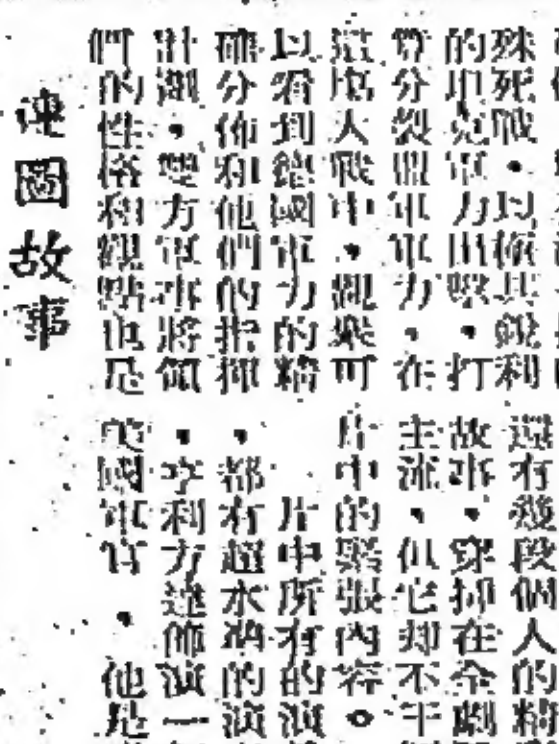 殊死戰。以其銳利
的坦克軍力出擊,打
算分裂盟軍軍力,在
這場大戰中,觀衆可
以看到德國軍力的精
確分佈和他們的指揮
計,雙方軍事將領
們的性格和觀點也是
還有幾段個人的精
故事,穿插在全劇
主流,但它却不干
片中的緊張內容。
片中所有的演
,都有超水準的演
,亨利方達飾演一
美國軍官,他是
連圖故事